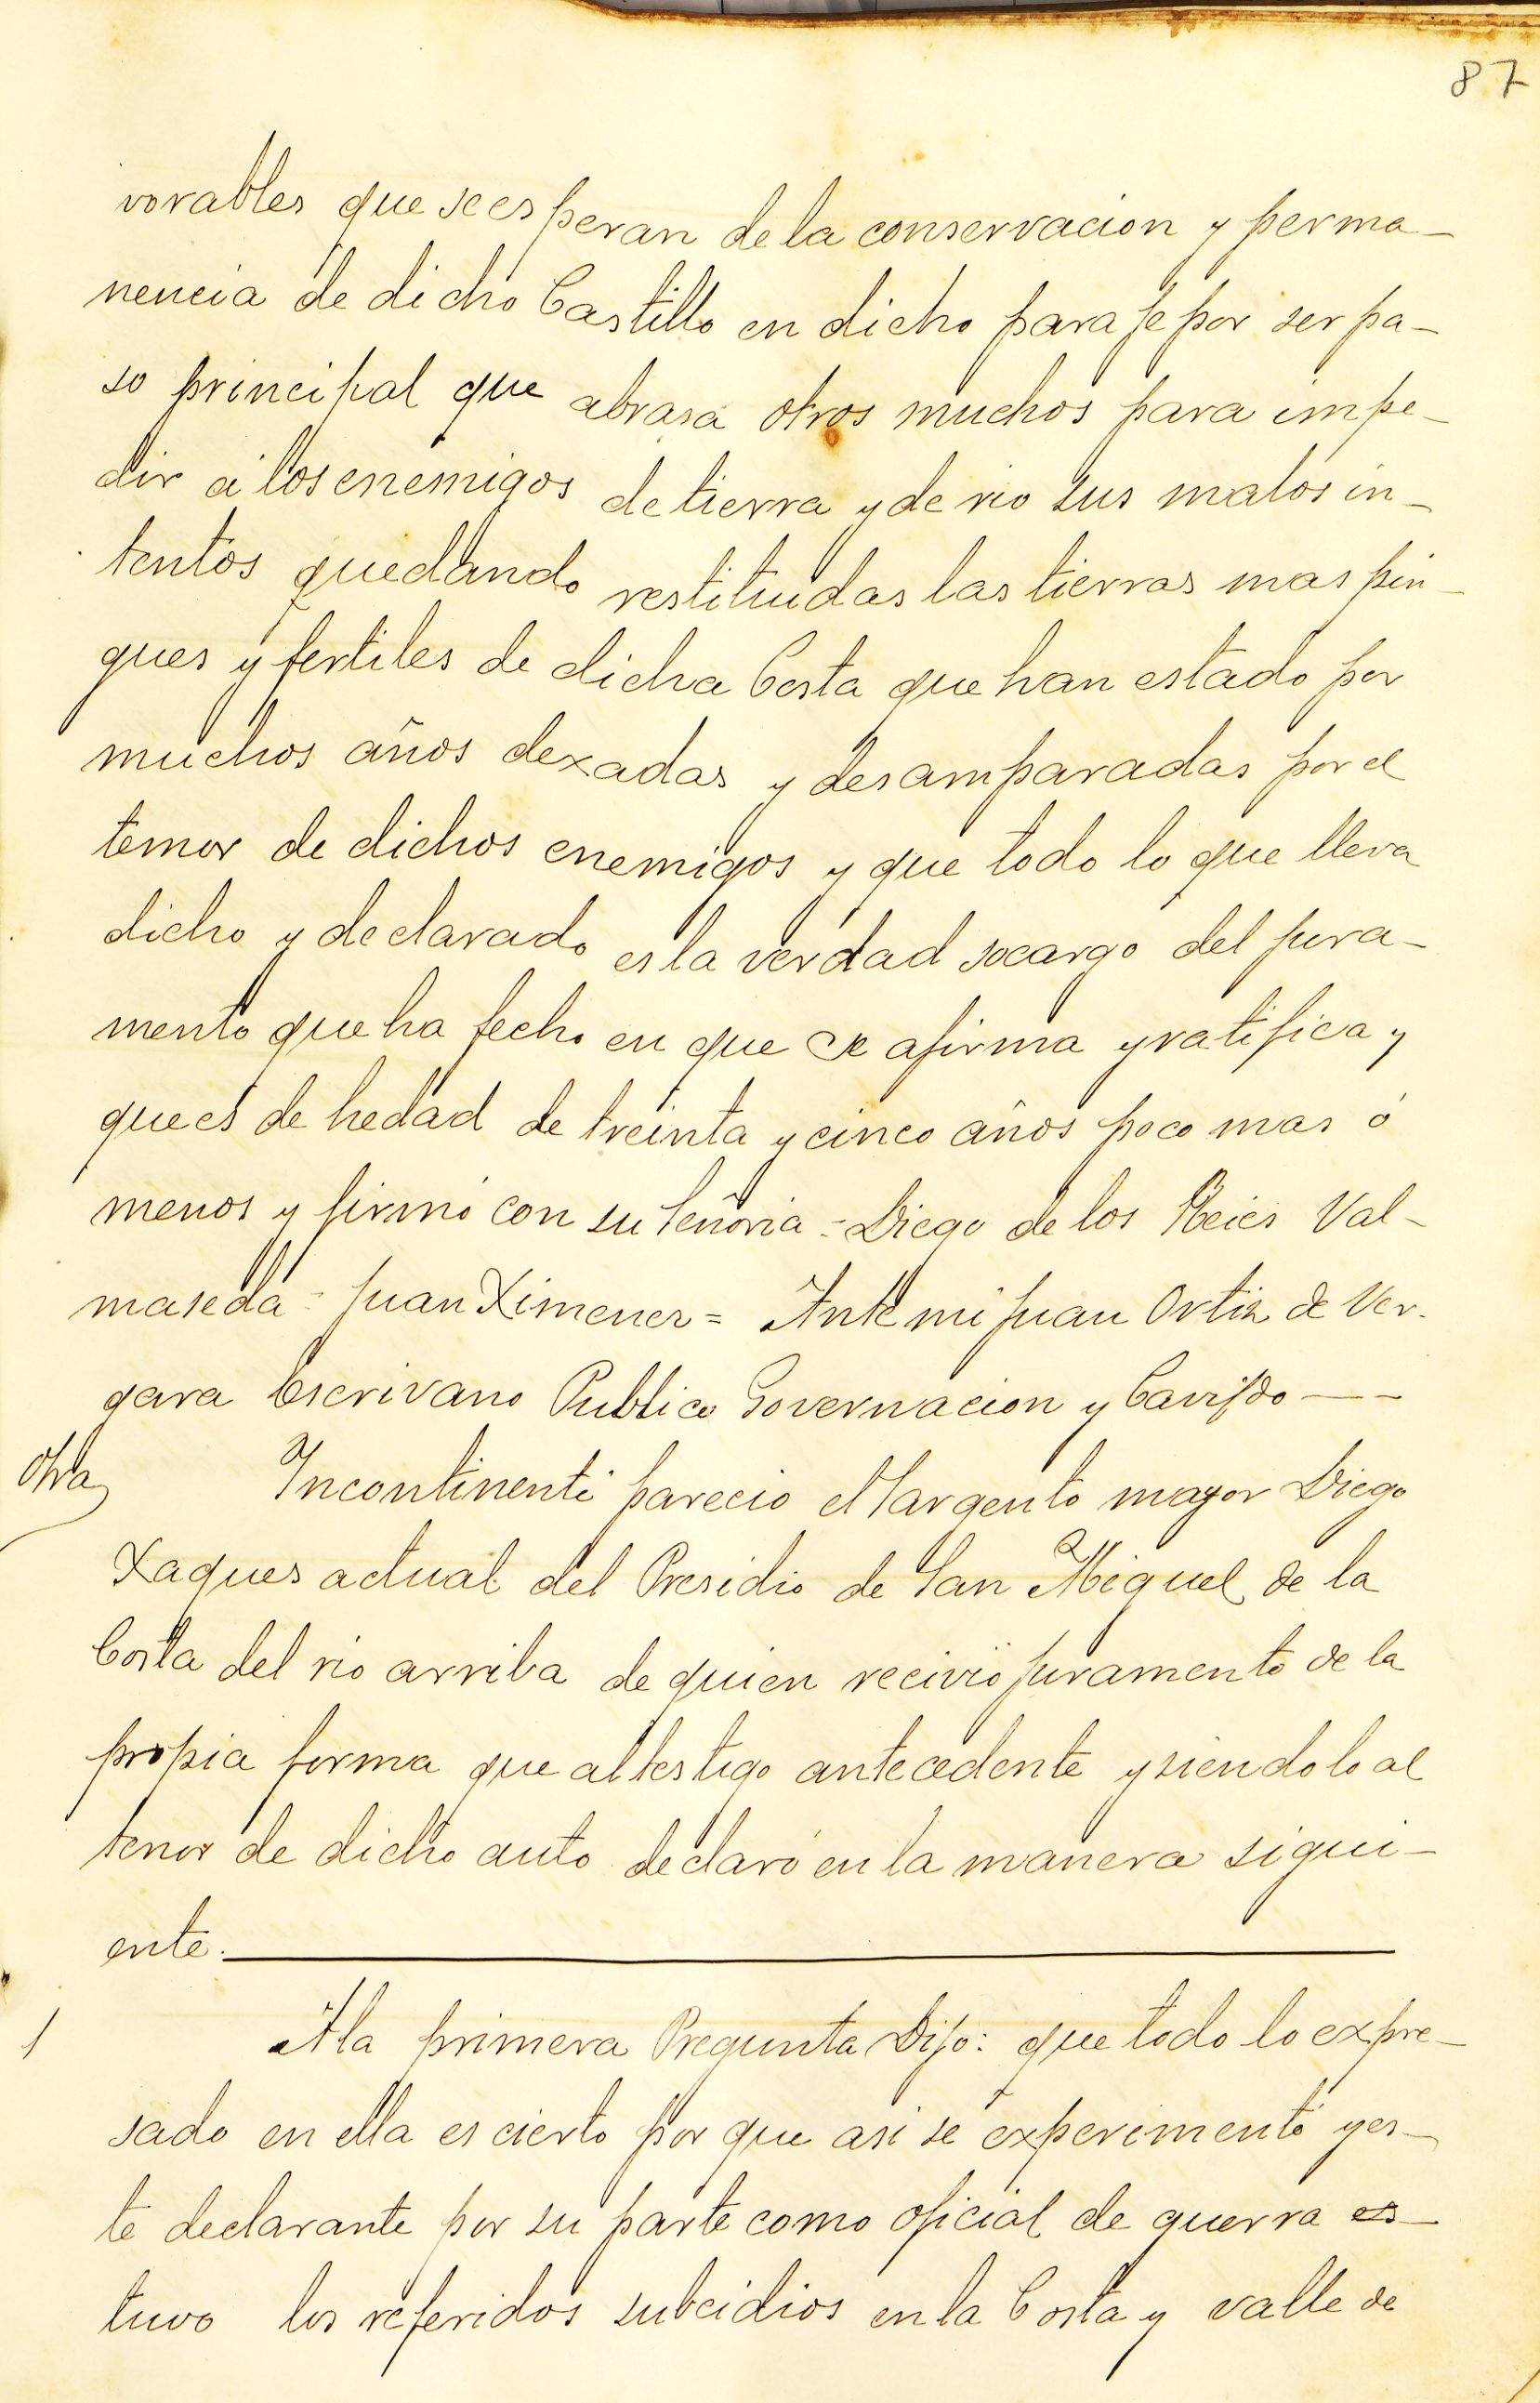 87
vorables que se esperan de la conservacion y perma-
nencia de dicho Castillo en dicho paraje por ser pa-
so principal que abrasa otros muchos para impe-
dir á los enemigos de tierra y de rio sus malos in-
tentos quedando restituidas las tierras mas pin-
gues y fertiles de dicha Costa que han estado por
muchos años dexadas y desamparadas por el
temor de dichos enemigos y que todo lo que lleva
dicho y declarado es la verdad socargo del jura-
mento que ha fecho en que se afirma y ratifica y
que es de hedad de treinta y cinco años poco mas ó
menos y firmó con su Señoria = Diego de los Reies Val-
maseda = Juan Ximenez = Ante mi Juan Ortiz de Ver-
gara Escrivano Publico Governacion y Cavildo ---
Otra
Incontinenti parecio el Sargento mayor Diego
Xaques actual del Presidio de San Miguel de la
Costa del rio arriba de quien recivió juramento de la
propia forma que al testigo antecedente y siendolo al
tenor de dicho auto declaró en la manera sigui-
ente.
1
A la primera Pregunta Dijo: que todo lo expre-
sado en ella es cierto por que asi se experimentó y es-
te declarante por su parte como oficial de guerra es-
tuvo los referidos subcidios en la Costa y valle de